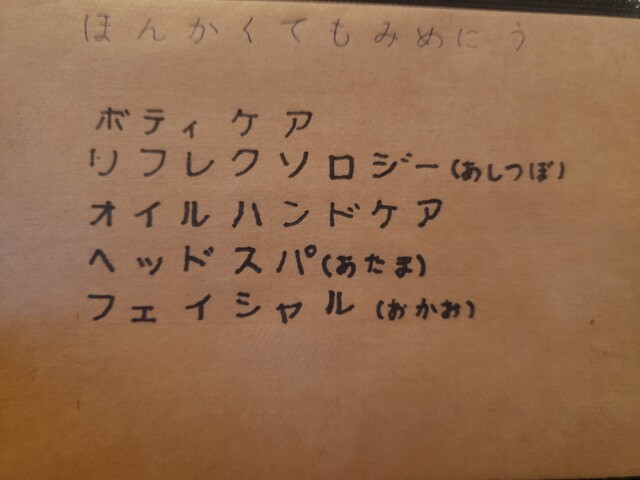 ほんかくてもみめにう
ボティケア
リフレクソロジー(あしつぼ)
オイルハンドケア
ヘッドスパ(あたま)
フェイシャル(おかお)